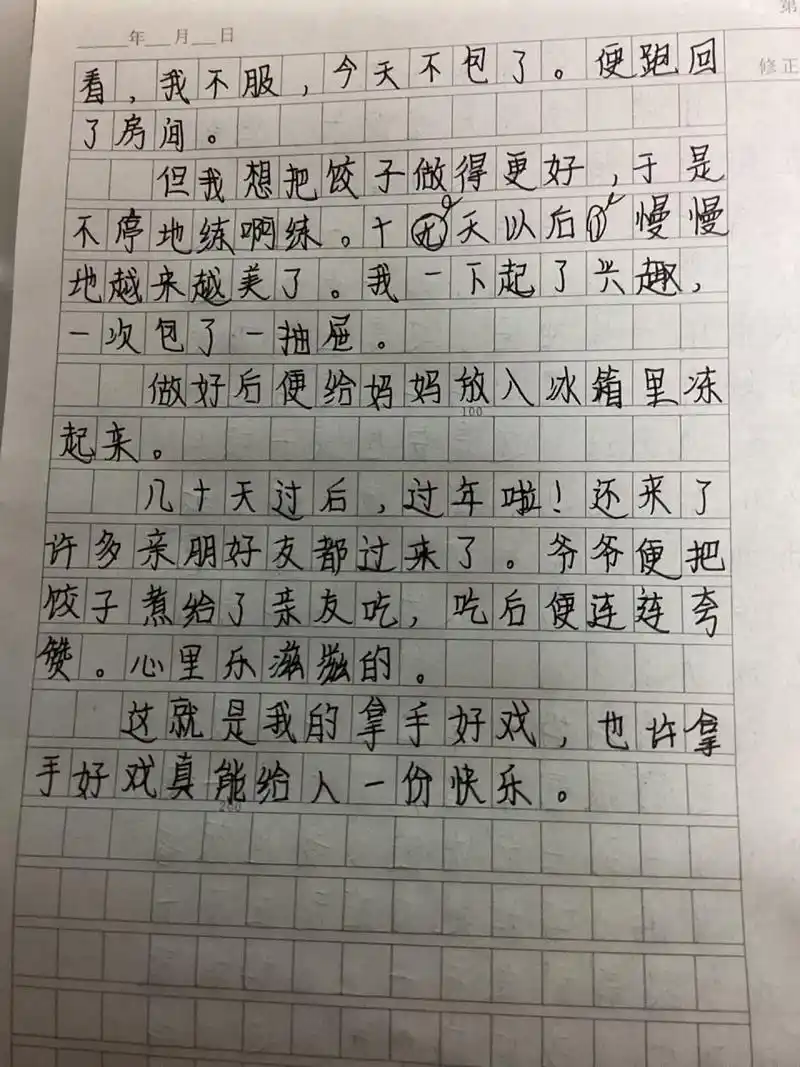 第
年 月 日
修正
看，我不服，今天不包了。便跑回
了房间。
但我想把饺子做得更好，于是
不停地练啊练。十天以后慢慢
地越来越美了。我一下起了兴趣，
一次包了一抽屉。
做好后便给妈妈放入冰箱里冻
100
起来。
几十天过后，过年啦！还来了
许多亲朋好友都过来了。爷爷便把
饺子煮给了亲友吃，吃后便连连夸
赞。心里乐滋滋的。
这就是我的拿手好戏，也许拿
手好戏真能给人一份快乐。
200